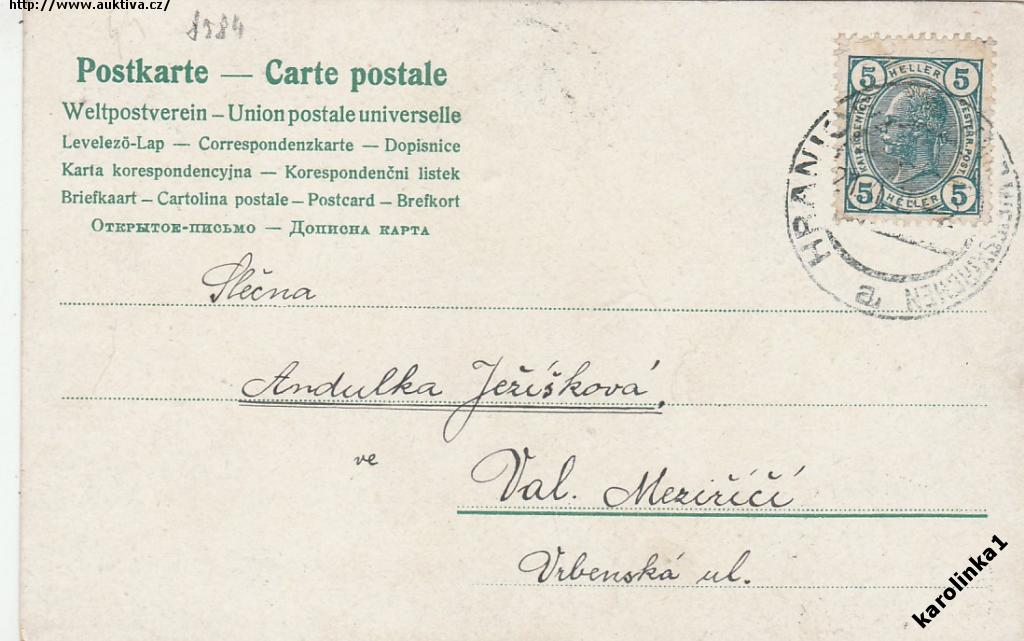 http://www.auktiva.cz/
Postkarte — Carte postale
Weltpostverein – Union postale universelle
Levelező-Lap — Correspondenzkarte — Dopisnice
Karta korespondencyjna — Korespondenčni listek
Briefkaart – Cartolina postale – Postcard – Brefkort
Открытое-письмо — Дописна карта
5 HELLER 5
5 HELLER 5
HRANIC
Slečna
Andulka Ježíšková,
ve
Val. Meziříčí
Vrbenská ul.
karolinka1